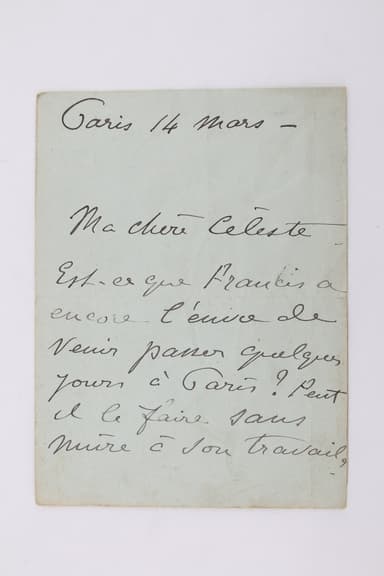 Paris 14 mars —
Ma chère Céleste
Est-ce que Francis a
encore l'envie de
venir passer quelques
jours à Paris ? Peut
il le faire sans
nuire à son travail ?